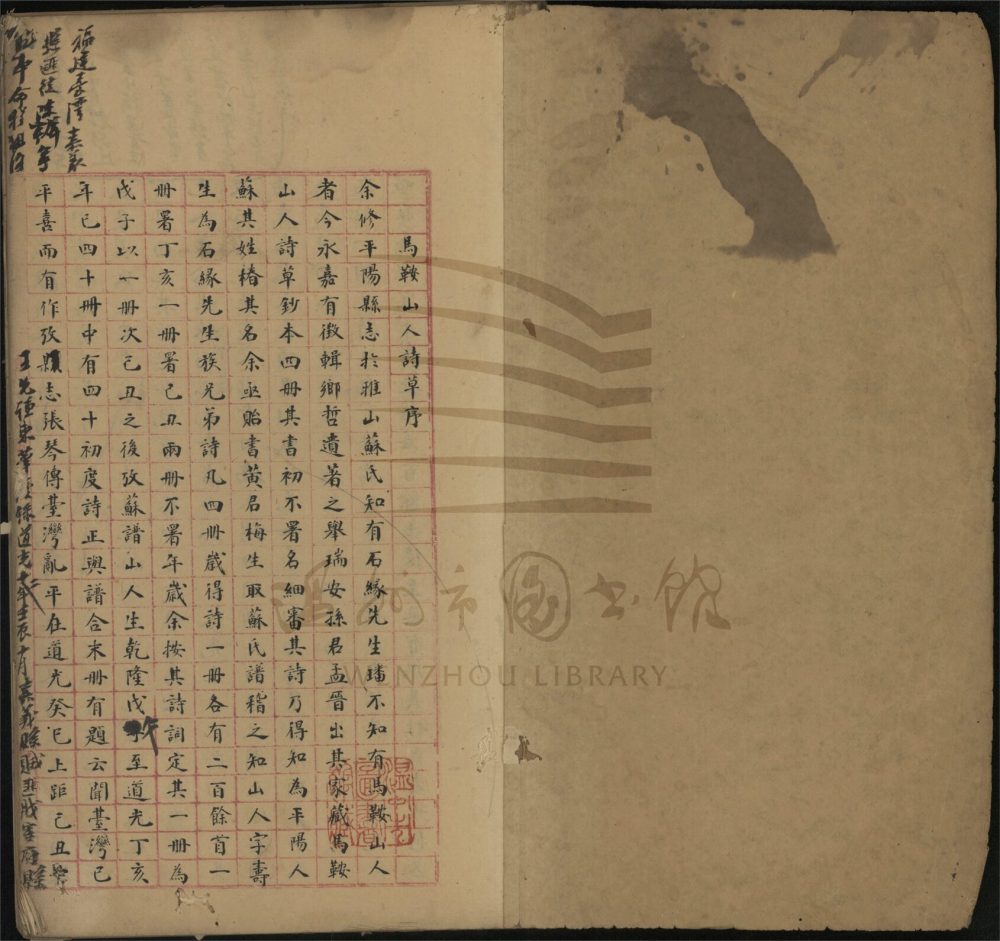 馬鞍山人詩草序
余修平陽縣志於雅山蘇氏知有石緣先生璠不知有馬鞍山人
者今永嘉有徵輯鄉哲遺著之舉瑞安孫君孟晉出其家藏馬鞍
山人詩草鈔本四冊其書初不署名細審其詩乃得知為平陽人
蘇其姓椿其名余亟貽書黃君梅生取蘇氏譜稽之知山人字壽
生為石緣先生族兄弟詩凡四冊歲得詩一冊各有二百餘首一
冊署丁亥一冊署己丑兩冊不署年歲余按其詩詞定其一冊為
戊子以一冊次己丑之後攷蘇譜山人生乾隆戊午至道光丁亥
年已四十冊中有四十初度詩正與譜合末冊有題云聞臺灣已
平喜而有作攷縣志張琴傳臺灣亂平在道光癸巳上距己丑
福建臺灣嘉義
縣匪徒陳辦等
王先謙東華續錄道光十二年壬辰十月嘉義縣賊匪戕害府縣
溫州市圖書館
WENZHOU LIBRARY